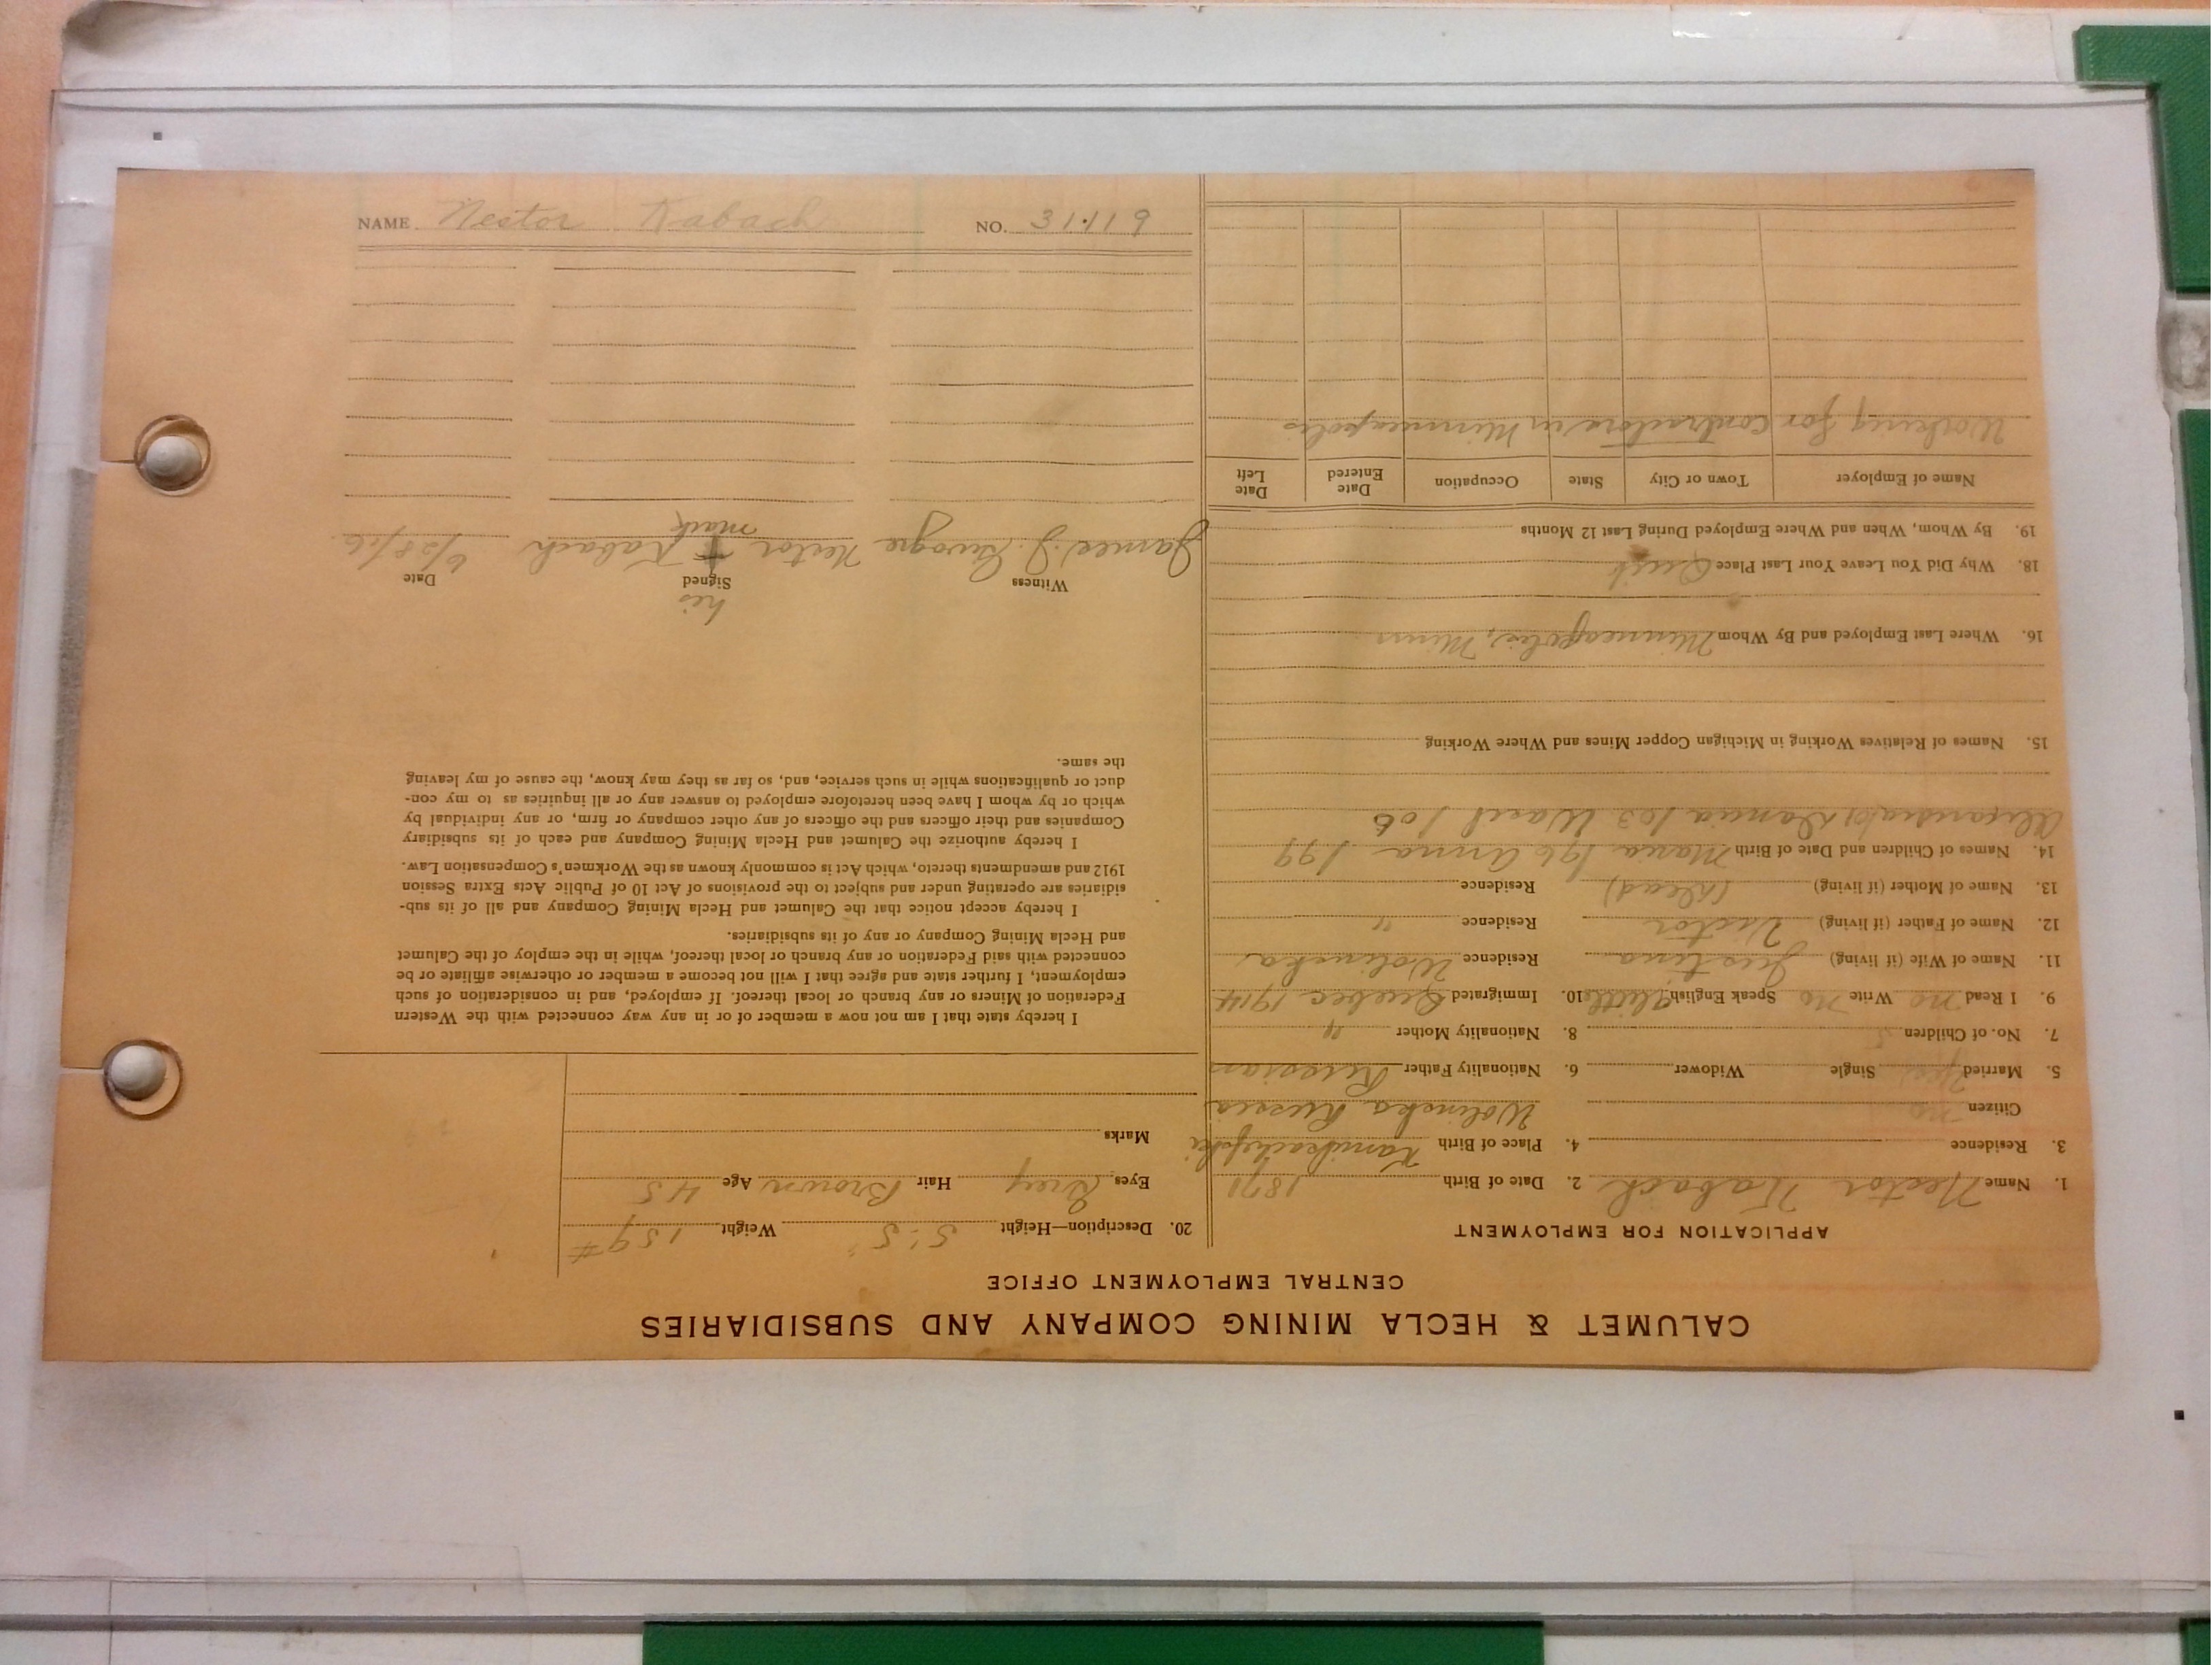 CALUMET & HECLA MINING COMPANY AND SUBSIDIARIES
CENTRAL EMPLOYMENT OFFICE
APPLICATION FOR EMPLOYMENT
1. Name Nestor Kabach 2. Date of Birth 1871
3. Residence 4. Place of Birth
Citizen no Wolinska Russia
5. Married yes Single Widower 6. Nationality Father Russian
7. No. of Children 5 8. Nationality Mother "
9. I Read no Write no Speak English alittle 10. Immigrated Quebec 1914
11. Name of Wife (if living) Justina Residence Wolinska
12. Name of Father (if living) Nestor Residence "
13. Name of Mother (if living) (dead) Residence
14. Names of Children and Date of Birth Maria 196 Anna 199
103 Wasil 106
15. Names of Relatives Working in Michigan Copper Mines and Where Working
16. Where Last Employed and By Whom Minneapolis, Minn
18. Why Did You Leave Your Last Place Quit
19. By Whom, When and Where Employed During Last 12 Months
Name of Employer Town or City State Occupation Date Entered Date Left
Working for contractors in Minneapolis
20. Description—Height 5'5" Weight 159#
Eyes Grey Hair Brown Age 45
Marks
I hereby state that I am not now a member of or in any way connected with the Western
Federation of Miners or any branch or local thereof. If employed, and in consideration of such
employment, I further state and agree that I will not become a member or otherwise affiliate or be
connected with said Federation or any branch or local thereof, while in the employ of the Calumet
and Hecla Mining Company or any of its subsidiaries.
I hereby accept notice that the Calumet and Hecla Mining Company and all of its sub-
sidiaries are operating under and subject to the provisions of Act 10 of Public Acts Extra Session
1912 and amendments thereto, which Act is commonly known as the Workmen's Compensation Law.
I hereby authorize the Calumet and Hecla Mining Company and each of its subsidiary
Companies and their officers and the officers of any other company or firm, or any individual by
which or by whom I have been heretofore employed to answer any or all inquiries as to my con-
duct or qualifications while in such service, and, so far as they may know, the cause of my leaving
the same.
his
Witness Signed Date
James J. Nestor + Kabach 6/28/16.
mark
NAME Nestor Kabach NO. 31119